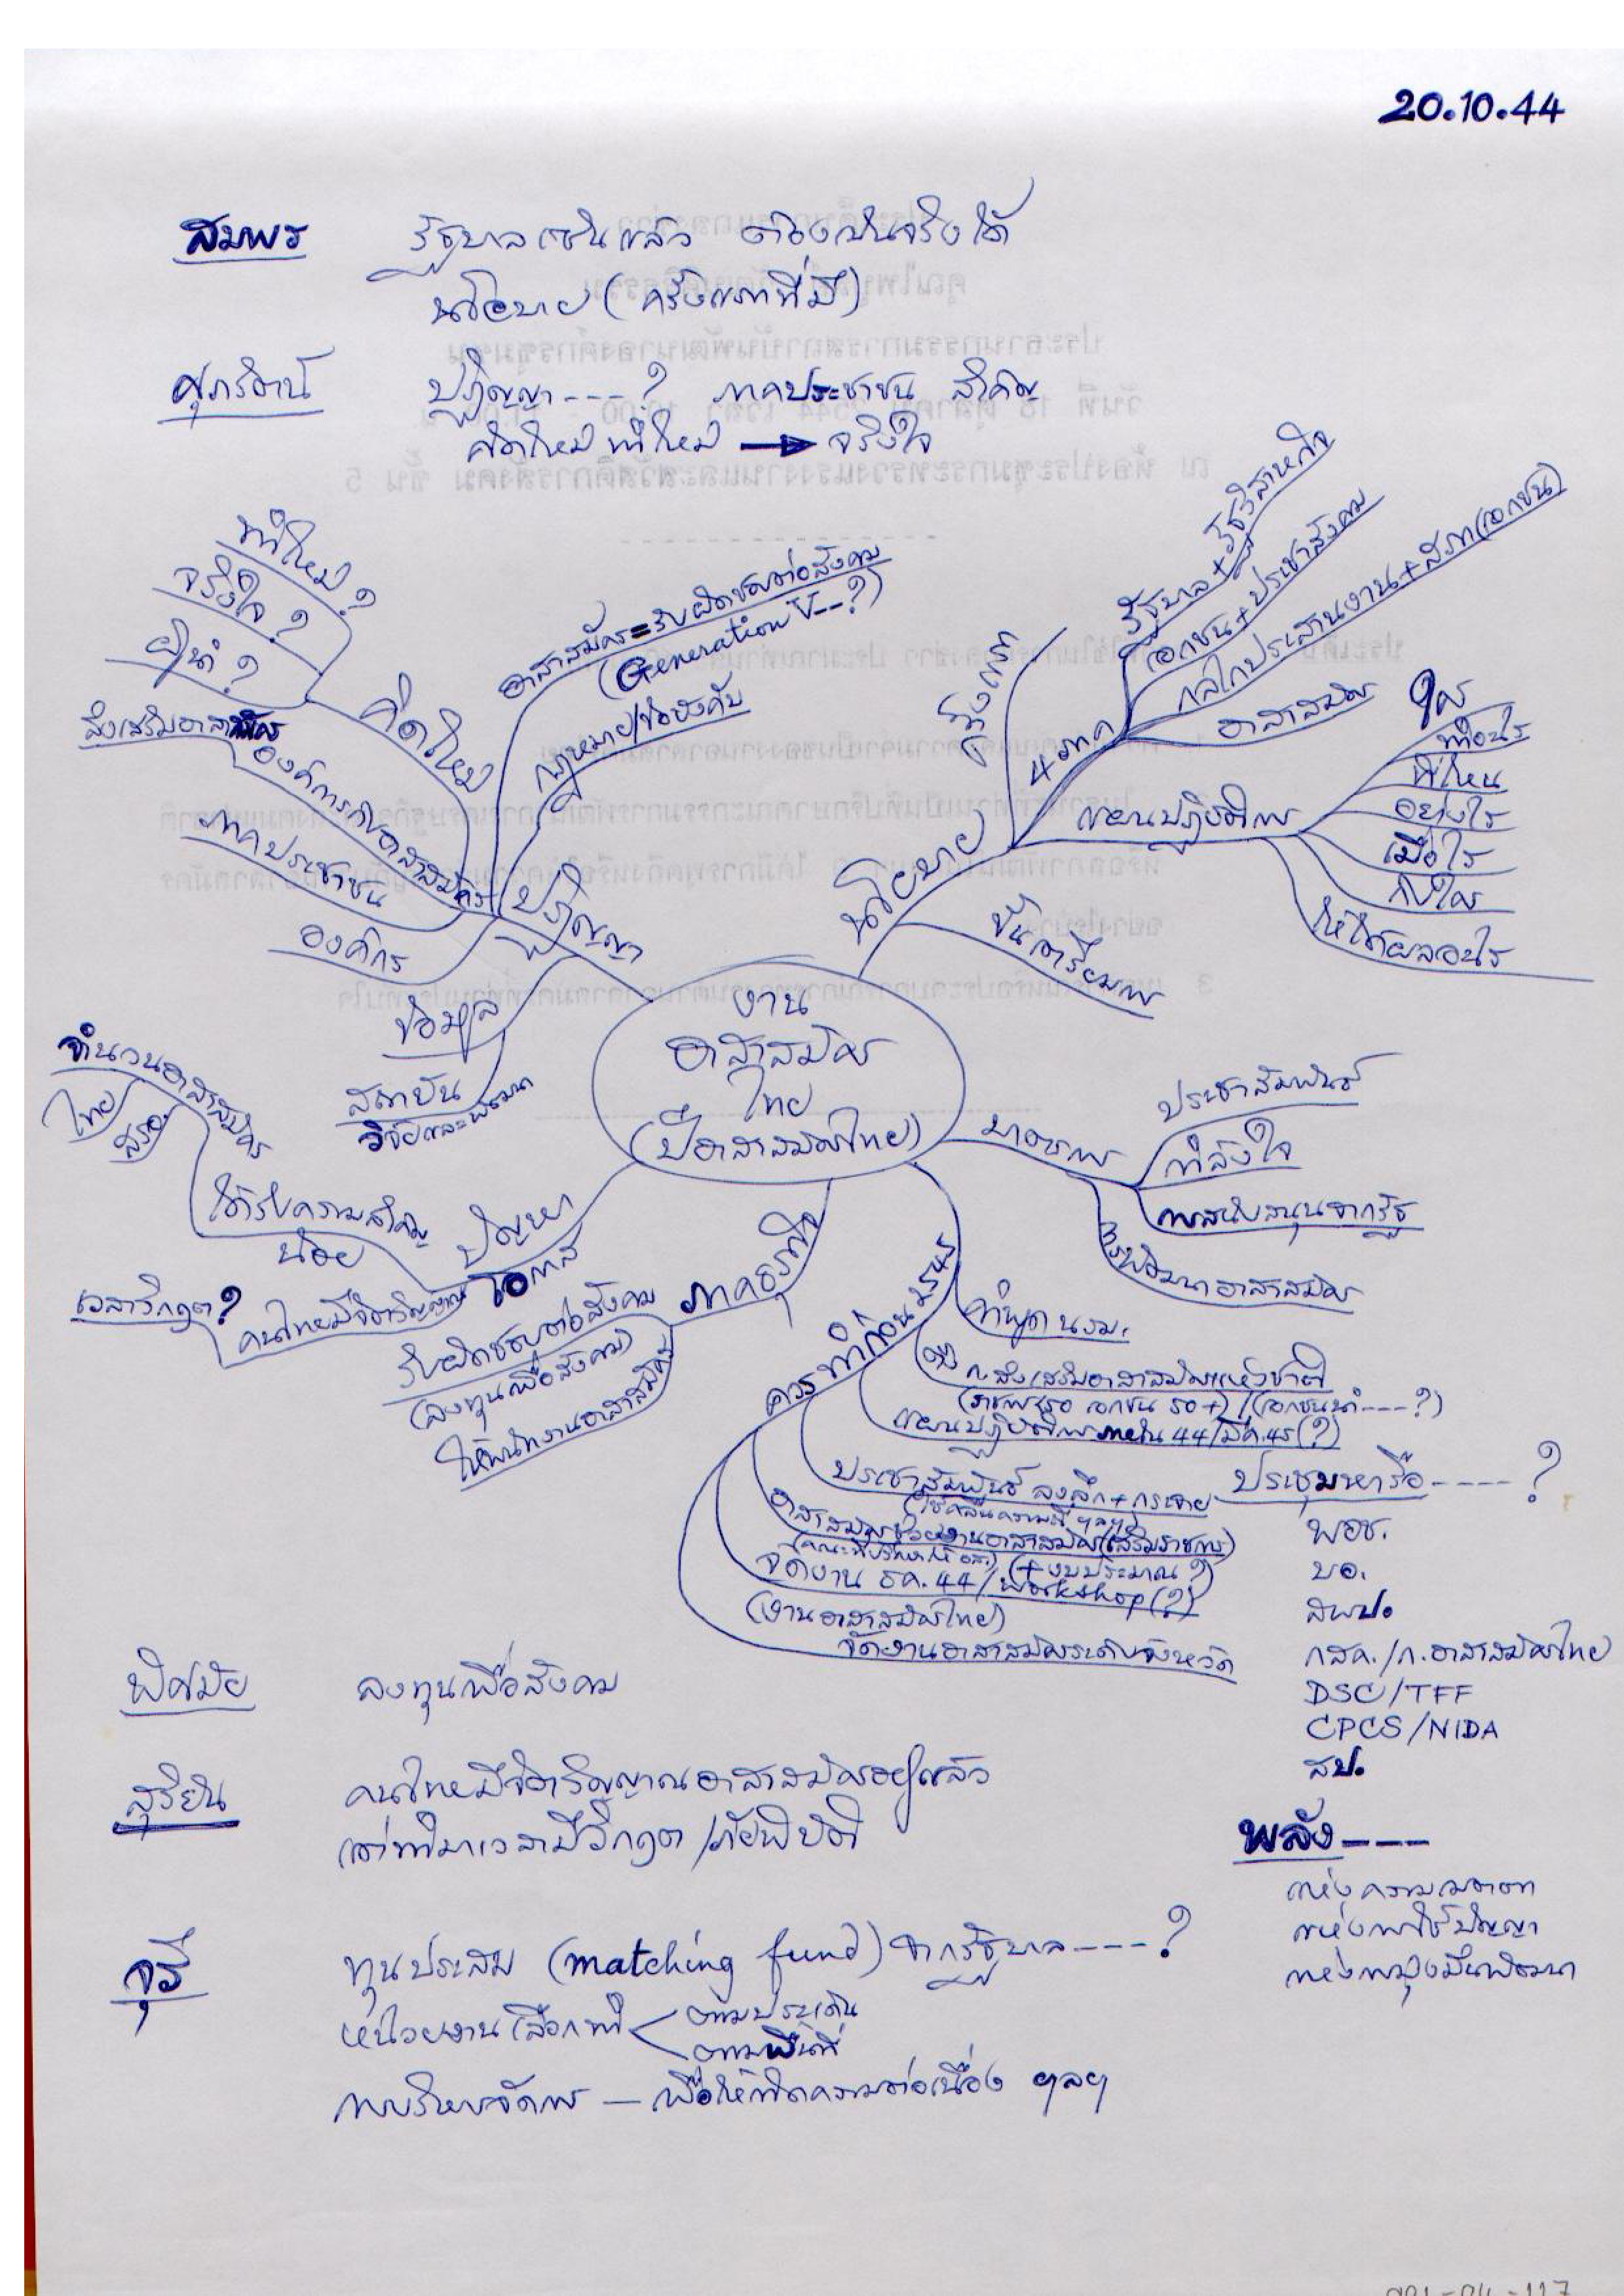 20.10.44
สมพร รัฐบาลเซ็นแล้ว ต้องเป็นจริงได้
นโยบาย (ครั้งแรกที่มี)
ศุภรัตน์ ปฏิญญา----? ภาคประชาชน สำคัญ
คิดใหม่ ทำใหม่ → จริงใจ
ทำใหม่?
จริงใจ?
ผู้นำ?
คิดใหม่
ส่งเสริมอาสาสมัคร
องค์การภายอาสาสมัคร
ภาคประชาชน
องค์กร
อาสาสมัคร=รับผิดชอบต่อสังคม
(Generation V--?)
กฎหมาย/ข้อบังคับ
ปฏิญญา
ข้อมูล
สถาบัน
วิจัยและพัฒนา
นโยบาย
จริงจัง
4 ภาค
รัฐบาล+รัฐวิสาหกิจ
เอกชน+ประชาสังคม
กลไกประสานงาน+สภา(เอกชน)
อาสาสมัคร
แผนปฏิบัติการ
ใคร
ทำอะไร
ที่ไหน
อย่างไร
เมื่อไร
กับใคร
ให้ได้ผลอะไร
ขั้นเตรียมการ
งาน
อาสาสมัคร
ไทย
(ปีอาสาสมัครไทย)
มาตรการ
ประชาสัมพันธ์
กำลังใจ
การสนับสนุนจากรัฐ
การพัฒนาอาสาสมัคร
จำนวนอาสาสมัคร
ไทย
สรอ
ได้รับความสำคัญ
น้อย
ปัญหา
โอกาส
เวลาวิกฤต?
คนไทยมีจิตวิญญาณ
ภาคธุรกิจ
รับผิดชอบต่อสังคม
(ลงทุนเพื่อสังคม)
ให้พนักงานอาสาสมัคร
ควรทำก่อน 2545
คำพูด นรม.
ตั้ง ก.ส่งเสริมอาสาสมัครแห่งชาติ
(ราชการ 50 เอกชน 50+)/(เอกชนนำ----?)
แผนปฏิบัติการภายใน 44/มีค.45(?)
ประชาสัมพันธ์ ลงลึก+กระจาย
(ใช้คลื่นความถี่ ฯลฯ)
อาสาสมัครช่วยงานอาสาสมัคร(เสริมราชการ)
(คณะที่ปรึกษาให้ อส.) (+งบประมาณ?)
จัดงาน ธค.44/workshop(?)
(งานอาสาสมัครไทย)
จัดงานอาสาสมัครระดับจังหวัด
ประชุมหารือ----?
พอช.
บอ.
สพป.
กสค./ก.อาสาสมัครไทย
DSC/TFF
CPCS/NIDA
สป.
พิศมัย ลงทุนเพื่อสังคม
สุริยัน คนไทยมีจิตวิญญาณอาสาสมัครอยู่แล้ว
แต่ทำในเวลามีวิกฤต/ภัยพิบัติ
พลัง---
แห่งความเมตตา
แห่งการใช้ปัญญา
แห่งการมุ่งมั่นพัฒนา
จุรี ทุนประสม (matching fund) จากรัฐบาล----?
หน่วยงานเลือกทำ < ตามประเด็น
ตามพื้นที่
การบริหารจัดการ — เพื่อให้เกิดความต่อเนื่อง ฯลฯ